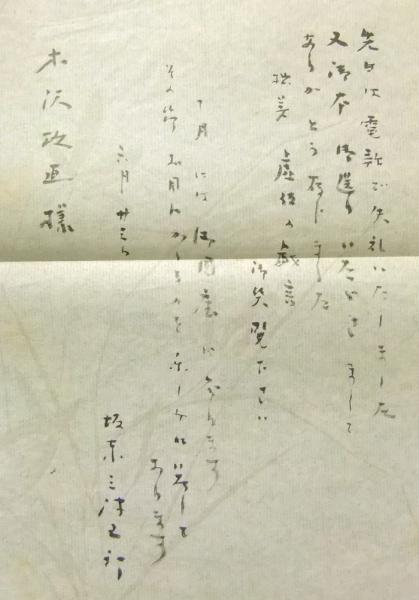 先日は電話で失礼いたしました
又御本御送りいたゞきまして
ありがとう存じました
拙美 虚位の戯言
御笑覧下さい
十月には御園座に参ります
その節お目にかゝるのを楽しみにいたして
おります
六月廿三日
坂東三津五郎
木沢政直様